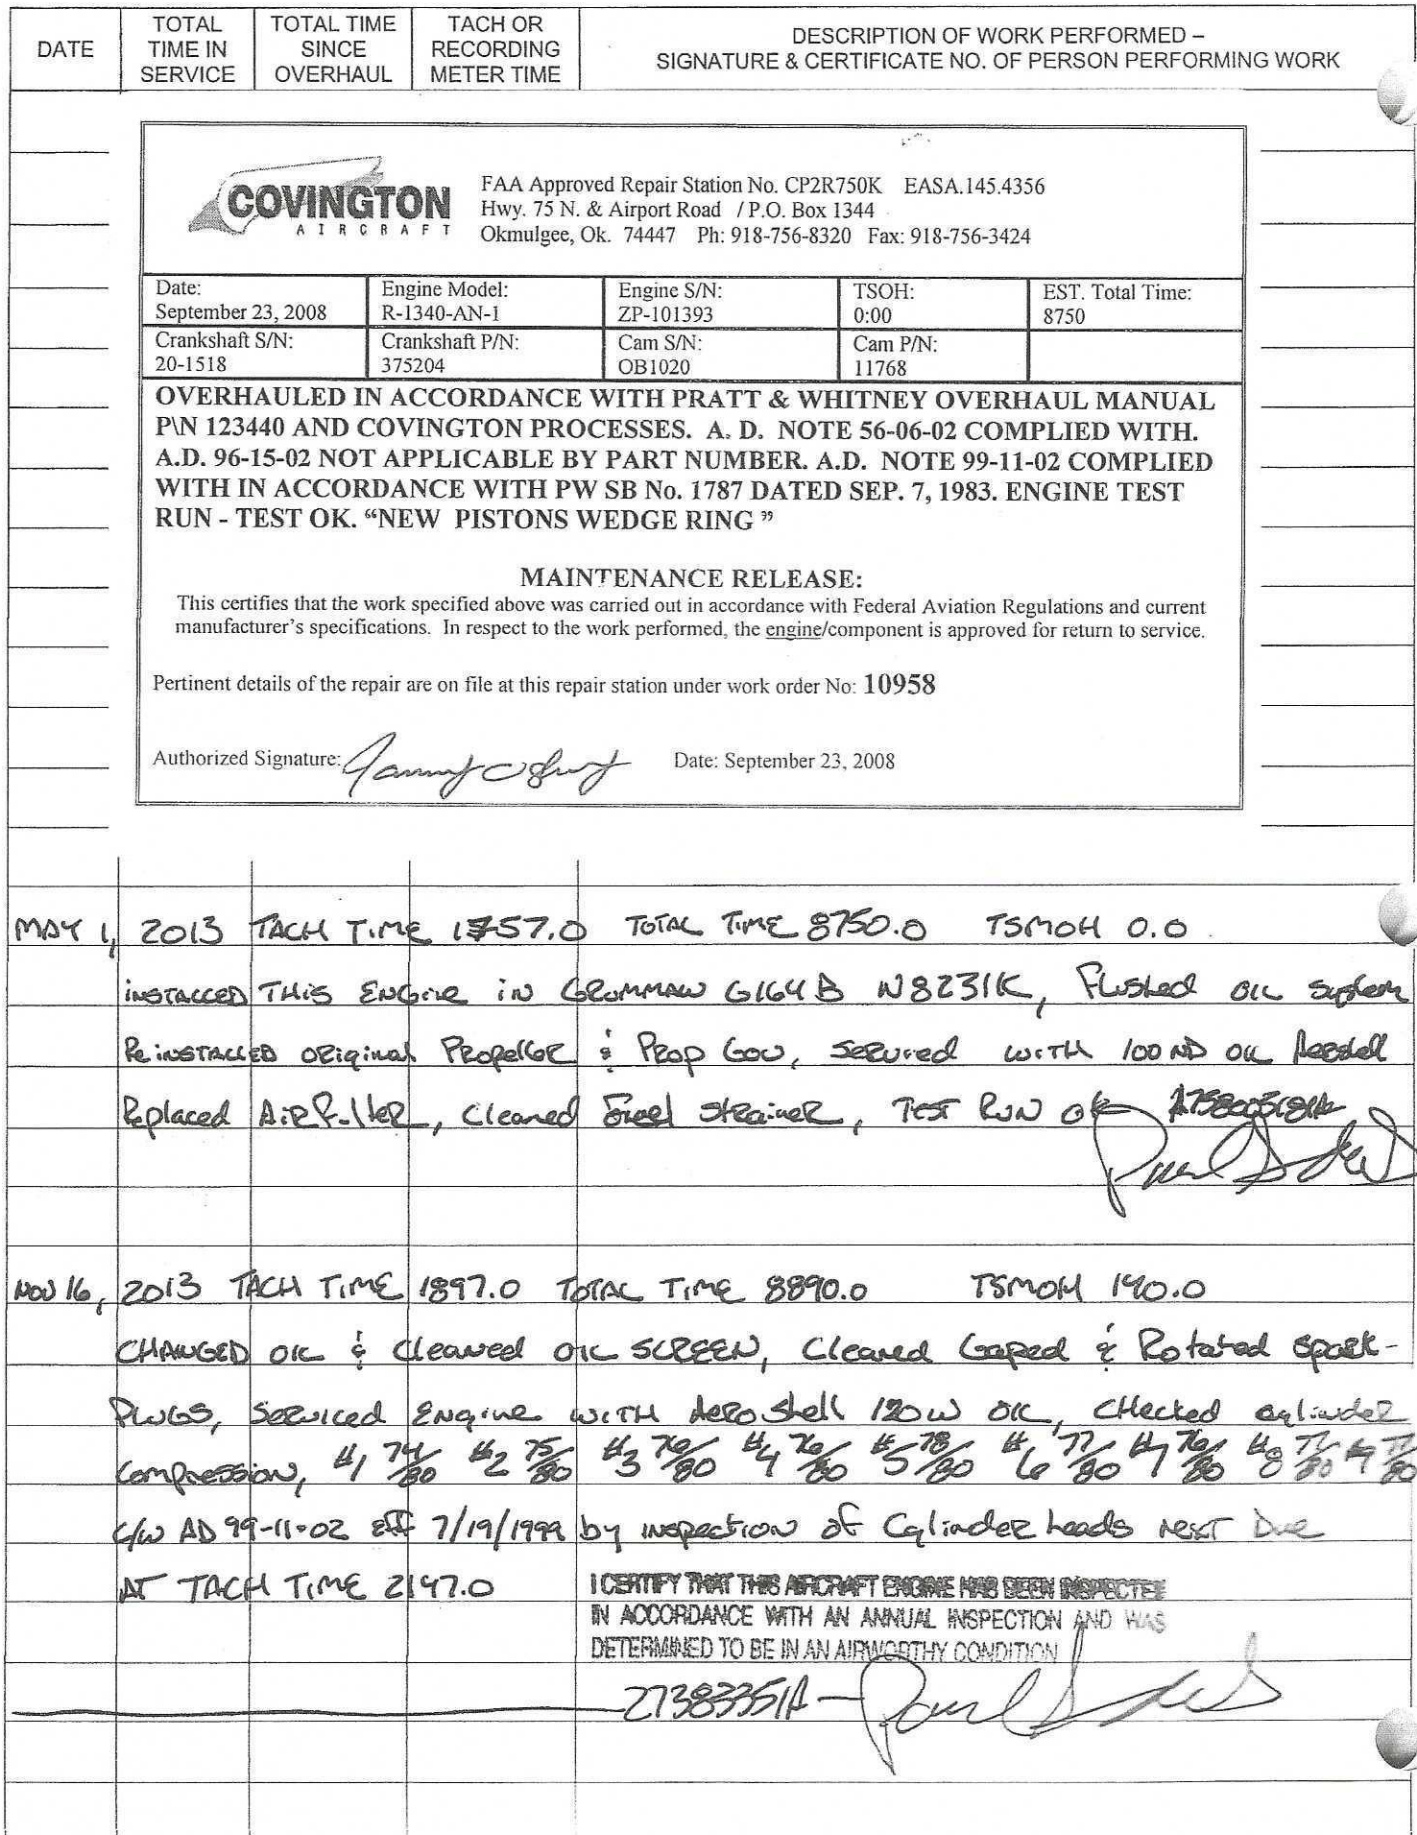 DATE
TOTAL TIME IN SERVICE
TOTAL TIME SINCE OVERHAUL
TACH OR RECORDING METER TIME
DESCRIPTION OF WORK PERFORMED –
SIGNATURE & CERTIFICATE NO. OF PERSON PERFORMING WORK
COVINGTON
AIRCRAFT
FAA Approved Repair Station No. CP2R750K EASA.145.4356
Hwy. 75 N. & Airport Road / P.O. Box 1344
Okmulgee, Ok. 74447 Ph: 918-756-8320 Fax: 918-756-3424
Date: Engine Model: Engine S/N: TSOH: EST. Total Time:
September 23, 2008 R-1340-AN-1 ZP-101393 0:00 8750
Crankshaft S/N: Crankshaft P/N: Cam S/N: Cam P/N:
20-1518 375204 OB1020 11768
OVERHAULED IN ACCORDANCE WITH PRATT & WHITNEY OVERHAUL MANUAL
P\N 123440 AND COVINGTON PROCESSES. A. D. NOTE 56-06-02 COMPLIED WITH.
A.D. 96-15-02 NOT APPLICABLE BY PART NUMBER. A.D. NOTE 99-11-02 COMPLIED
WITH IN ACCORDANCE WITH PW SB No. 1787 DATED SEP. 7, 1983. ENGINE TEST
RUN - TEST OK. “NEW PISTONS WEDGE RING ”
MAINTENANCE RELEASE:
This certifies that the work specified above was carried out in accordance with Federal Aviation Regulations and current
manufacturer’s specifications. In respect to the work performed, the engine/component is approved for return to service.
Pertinent details of the repair are on file at this repair station under work order No: 10958
Authorized Signature: Date: September 23, 2008
MAY 1, 2013 TACH TIME 1757.0 TOTAL TIME 8750.0 TSMOH 0.0
INSTALLED THIS ENGINE IN GRUMMAN G164B N8231K, Flushed OIL System
Re INSTALLED ORiginal PROPelloR & PROP GOV, SERViced WITH 100 ND OIL Aeroshell
Replaced AiR FilteR, Cleaned Fuel StRaineR, TEST RUN OK
NOV 16, 2013 TACH TIME 1897.0 TOTAL TIME 8890.0 TSMOH 140.0
CHANGED OIL & Cleaned OIL SCREEN, Cleaned Gaped & Rotated SPARK-
PLUGS, Serviced ENgine WITH AeRO Shell 120W OIL, CHecked cylinder
Compression, #1 74/80 #2 75/80 #3 76/80 #4 76/80 #5 78/80 #6 77/80 #7 76/80 #8 77/80 #9 77/80
C/W AD 99-11-02 Eff 7/19/1999 by inspection of Cylinder heads NEXT Due
AT TACH TIME 2147.0
I CERTIFY THAT THIS AIRCRAFT ENGINE HAS BEEN INSPECTED
IN ACCORDANCE WITH AN ANNUAL INSPECTION AND WAS
DETERMINED TO BE IN AN AIRWORTHY CONDITION
2738335IA